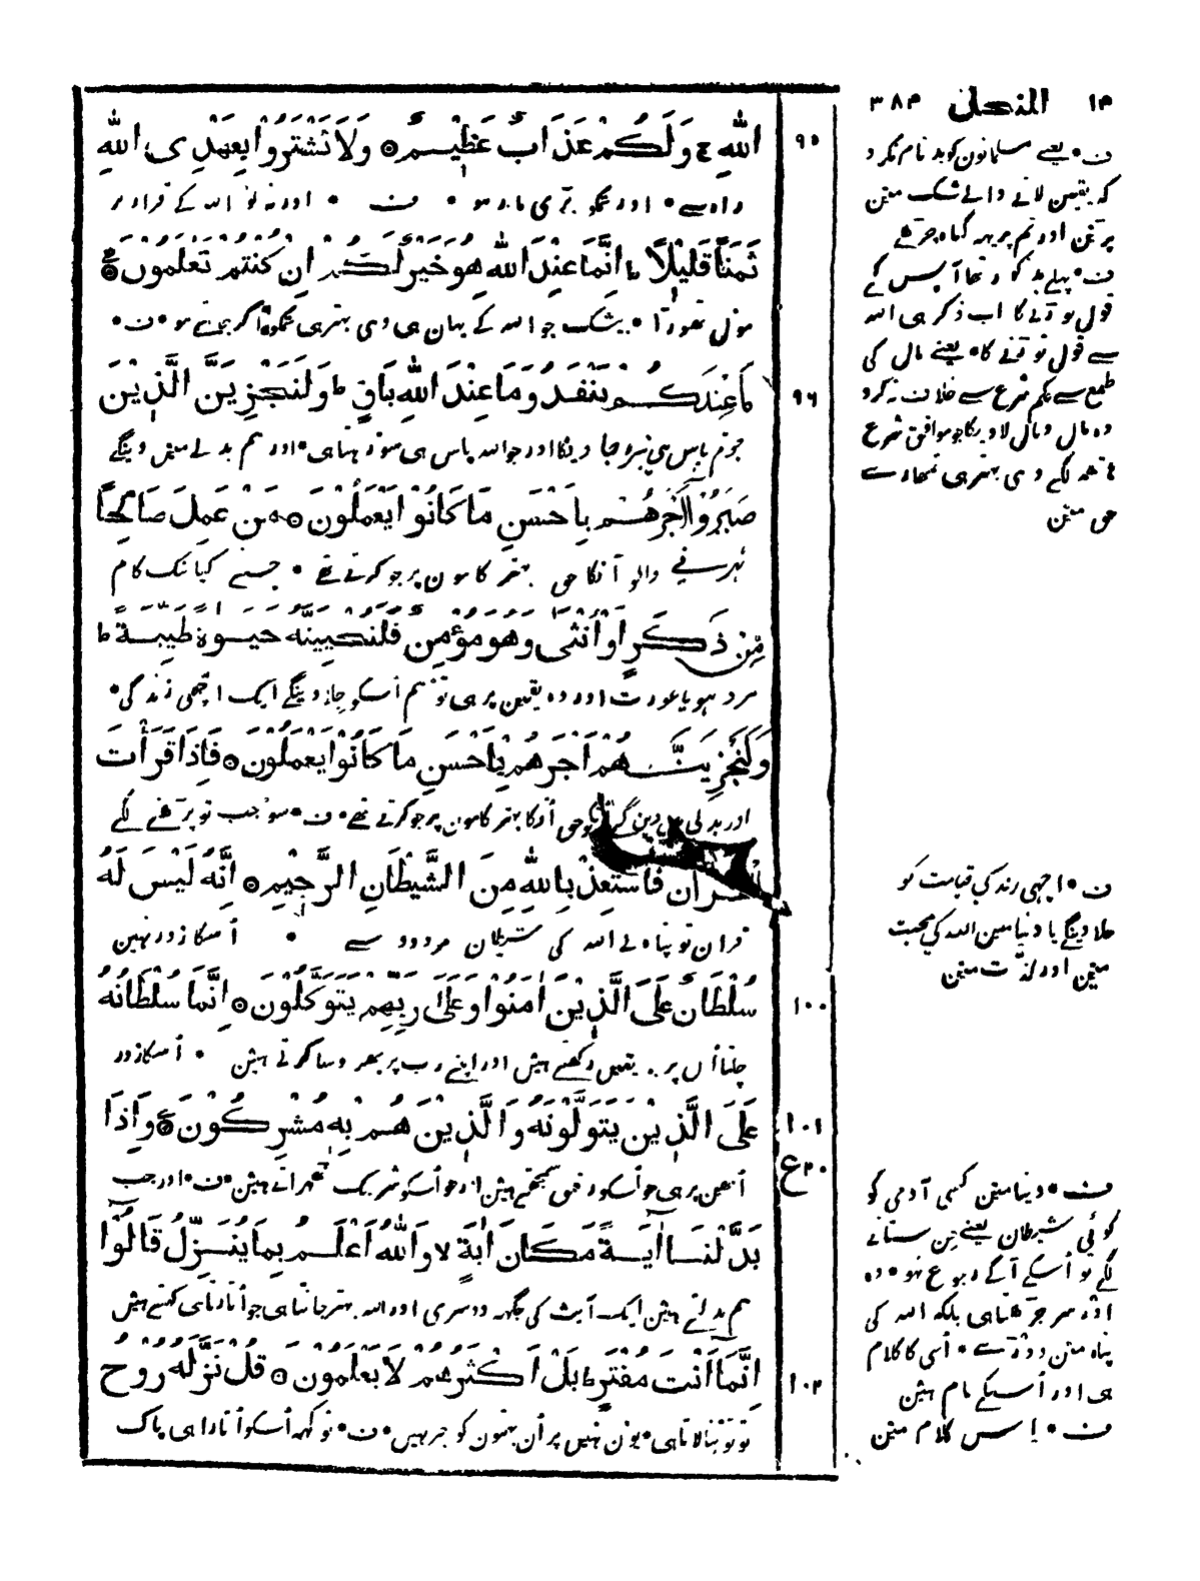 ١٤ النحل ٣٨٤
اللهِ ج وَلَكُمْ عَذَابٌ عَظِيْمٌ ٥ وَلَا تَشْتَرُوا بِعَهْدِ اللهِ
٩٥
راہ سے • اور تمکو بڑی مار ہو • ف • اور نہ لو اللہ کے قرار پر
ثَمَنًا قَلِيْلًا ط اِنَّمَا عِنْدَ اللهِ هُوَ خَيْرٌ لَّكُمْ اِنْ كُنْتُمْ تَعْلَمُوْنَ ٥
مول تھوڑا • بیشک جو اللہ کے یہان ہی وہی بہتر ہی تمکو اگر جانتے ہو • ف •
مَا عِنْدَكُمْ يَنْفَدُ وَمَا عِنْدَ اللهِ بَاقٍ ط وَلَنَجْزِيَنَّ الَّذِيْنَ
٩٦
جو تم پاس ہی نبڑ جاویگا اور جو اللہ پاس ہی سو رہتا ہی • اور ہم بدلے مین دینگے
صَبَرُوْا اَجْرَهُمْ بِاَحْسَنِ مَا كَانُوْا يَعْمَلُوْنَ ٥ مَنْ عَمِلَ صَالِحًا
ٹہرنے والو انکا حق بہتر کامون پر جو کرتے تھے • جسنے کیا نیک کام
مِّنْ ذَكَرٍ اَوْ اُنْثٰى وَهُوَ مُؤْمِنٌ فَلَنُحْيِيَنَّهٗ حَيٰوةً طَيِّبَةً ط
مرد ہو یا عورت اور وہ یقین پر ہی تو ہم اسکو جلا دینگے ایک اچھی زندگی •
وَلَنَجْزِيَنَّهُمْ اَجْرَهُمْ بِاَحْسَنِ مَا كَانُوْا يَعْمَلُوْنَ ٥ فَاِذَا قَرَأْتَ
اور بدلے مین دین گے حق انکا بہتر کامون پر جو کرتے تھے • ف • سو جب تو پڑھنے لگے
الْقُرْاٰنَ فَاسْتَعِذْ بِاللهِ مِنَ الشَّيْطَانِ الرَّجِيْمِ ٥ اِنَّهٗ لَيْسَ لَهٗ
قران تو پناہ لے اللہ کی شیطان مردود سے • اسکا زور نہین
سُلْطَانٌ عَلَى الَّذِيْنَ اٰمَنُوْا وَعَلٰى رَبِّهِمْ يَتَوَكَّلُوْنَ ٥ اِنَّمَا سُلْطَانُهٗ
١٠٠
چلتا ان پر جو یقین رکھتے ہیں اور اپنے رب پر بھروسا کرتے ہین • اسکا زور
عَلَى الَّذِيْنَ يَتَوَلَّوْنَهٗ وَالَّذِيْنَ هُمْ بِهٖ مُشْرِكُوْنَ ٥ وَاِذَا
١٠١
ع ٢٠
انھین پر ہی جو اسکو رفیق سمجھتے ہین اور جو اسکو شریک ٹھہراتے ہین • ف • اور جب
بَدَّلْنَا اٰيَةً مَّكَانَ اٰيَةٍ لا وَاللهُ اَعْلَمُ بِمَا يُنَزِّلُ قَالُوْا
ہم بدلتے ہین ایک آیت کی جگہہ دوسری اور اللہ بہتر جانتا ہی جو اتارتا ہی کہتے ہین
اِنَّمَا اَنْتَ مُفْتَرٍ ط بَلْ اَكْثَرُهُمْ لَا يَعْلَمُوْنَ ٥ قُلْ نَزَّلَهٗ رُوْحُ
١٠٢
تو تو بنا لاتا ہی • یون نہین پر ان بہتون کو خبر نہین • ف • تو کہہ اسکو اتارا ہی پاک
ف • یعنے مسلمانون کو بدنام نکرو
کہ یقین لانے والے شک مین
پڑین اور تم پر یہہ گناہ چڑھے
ف • پہلے مذکور تھا آپس کے
قول توڑنے کا اب ذکر ہی اللہ
سے قول توڑنے کا • یعنے مال کی
طمع سے حکم شرع سے خلاف نہ کرو
وہ مال وبال لاویگا جو موافق شرع
ہاتھہ لگے وہی بہتر ہی تمھارے
حق مین
ف • اچھی زندگی قیامت کو
جلا دینگے یا دنیا مین اللہ کی محبت
مین اور لذت مین
ف • دنیا مین کسی آدمی کو
کوئی شیطان یعنے جن ستانے
لگے تو اسکے آگے رجوع نہو • وہ
اور سر چڑھتا ہی بلکہ اللہ کی
پناہ مین دوڑے • اسی کا کلام
ہی اور اسیکے نام ہین
ف • اس کلام مین